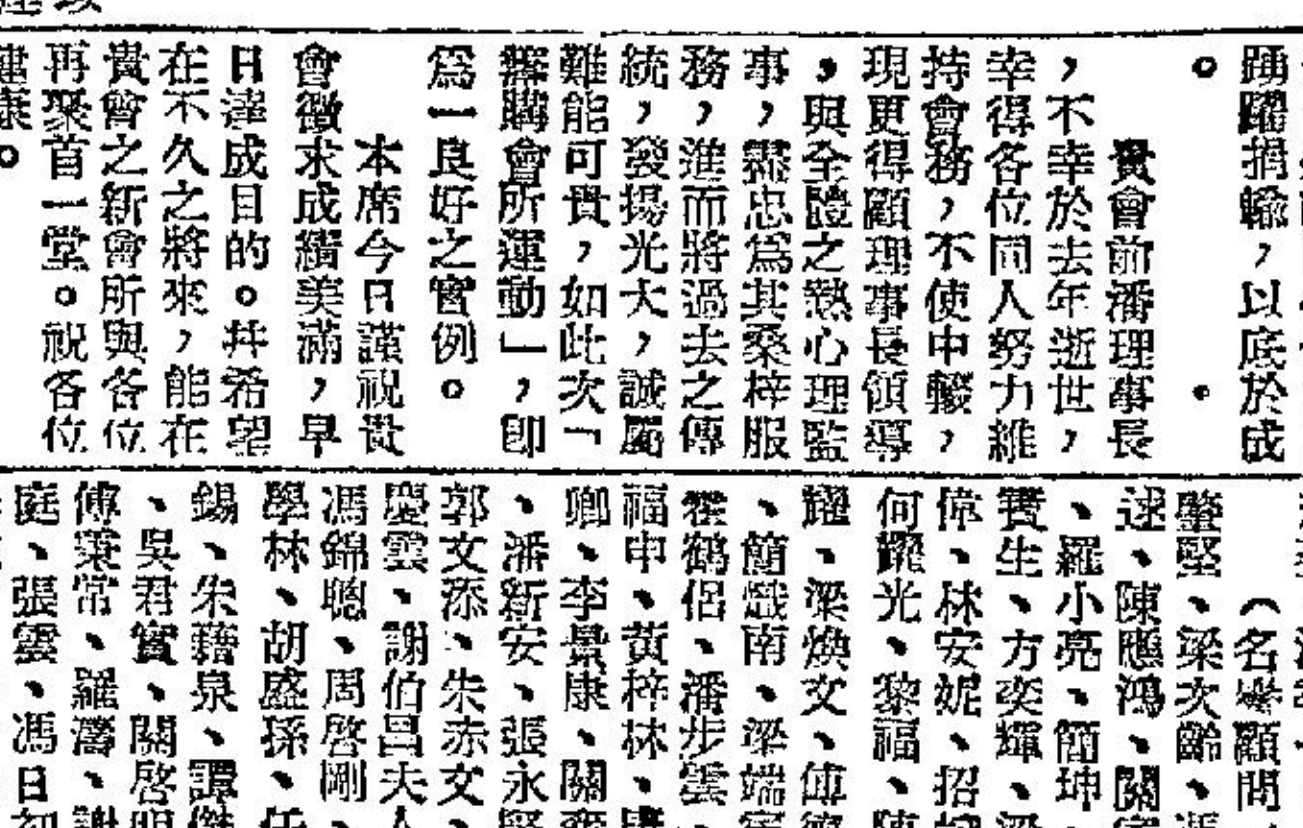 踴躍捐輸，以底於成
。
貴會前潘理事長
，不幸於去年逝世，
幸得各位同人努力維
持會務，不使中輟，
現更得顧理事長領導
，與全體之熱心理監
事，盡忠爲其桑梓服
務，進而將過去之傳
統，發揚光大，誠屬
難能可貴，如此次「
籌購會所運動」，卽
爲一良好之實例。
本席今日謹祝貴
會徵求成績美滿，早
日達成目的。幷希望
在不久之將來，能在
貴會之新會所與各位
再聚首一堂。祝各位
建康。
（名譽顧問
肇堅、梁次齡、馮
逑、陳應鴻、關
、羅小亮、簡坤
寶生、方奕輝、梁
偉、林安妮、招
何耀光、黎福、陳
耀、梁煥文、傅
、簡熾南、梁端
霍鶴侶、潘步雲
福申、黃梓林、
卿、李景康、關
、潘新安、張永
郭文添、朱赤文、
慶雲、謝伯昌夫人
馮錦聰、周啓剛、
學林、胡盛孫、任
錫、朱藉泉、譚傑
、吳君實、關啓明
傅秉常、羅濤、謝
庭、張雲、馮日初